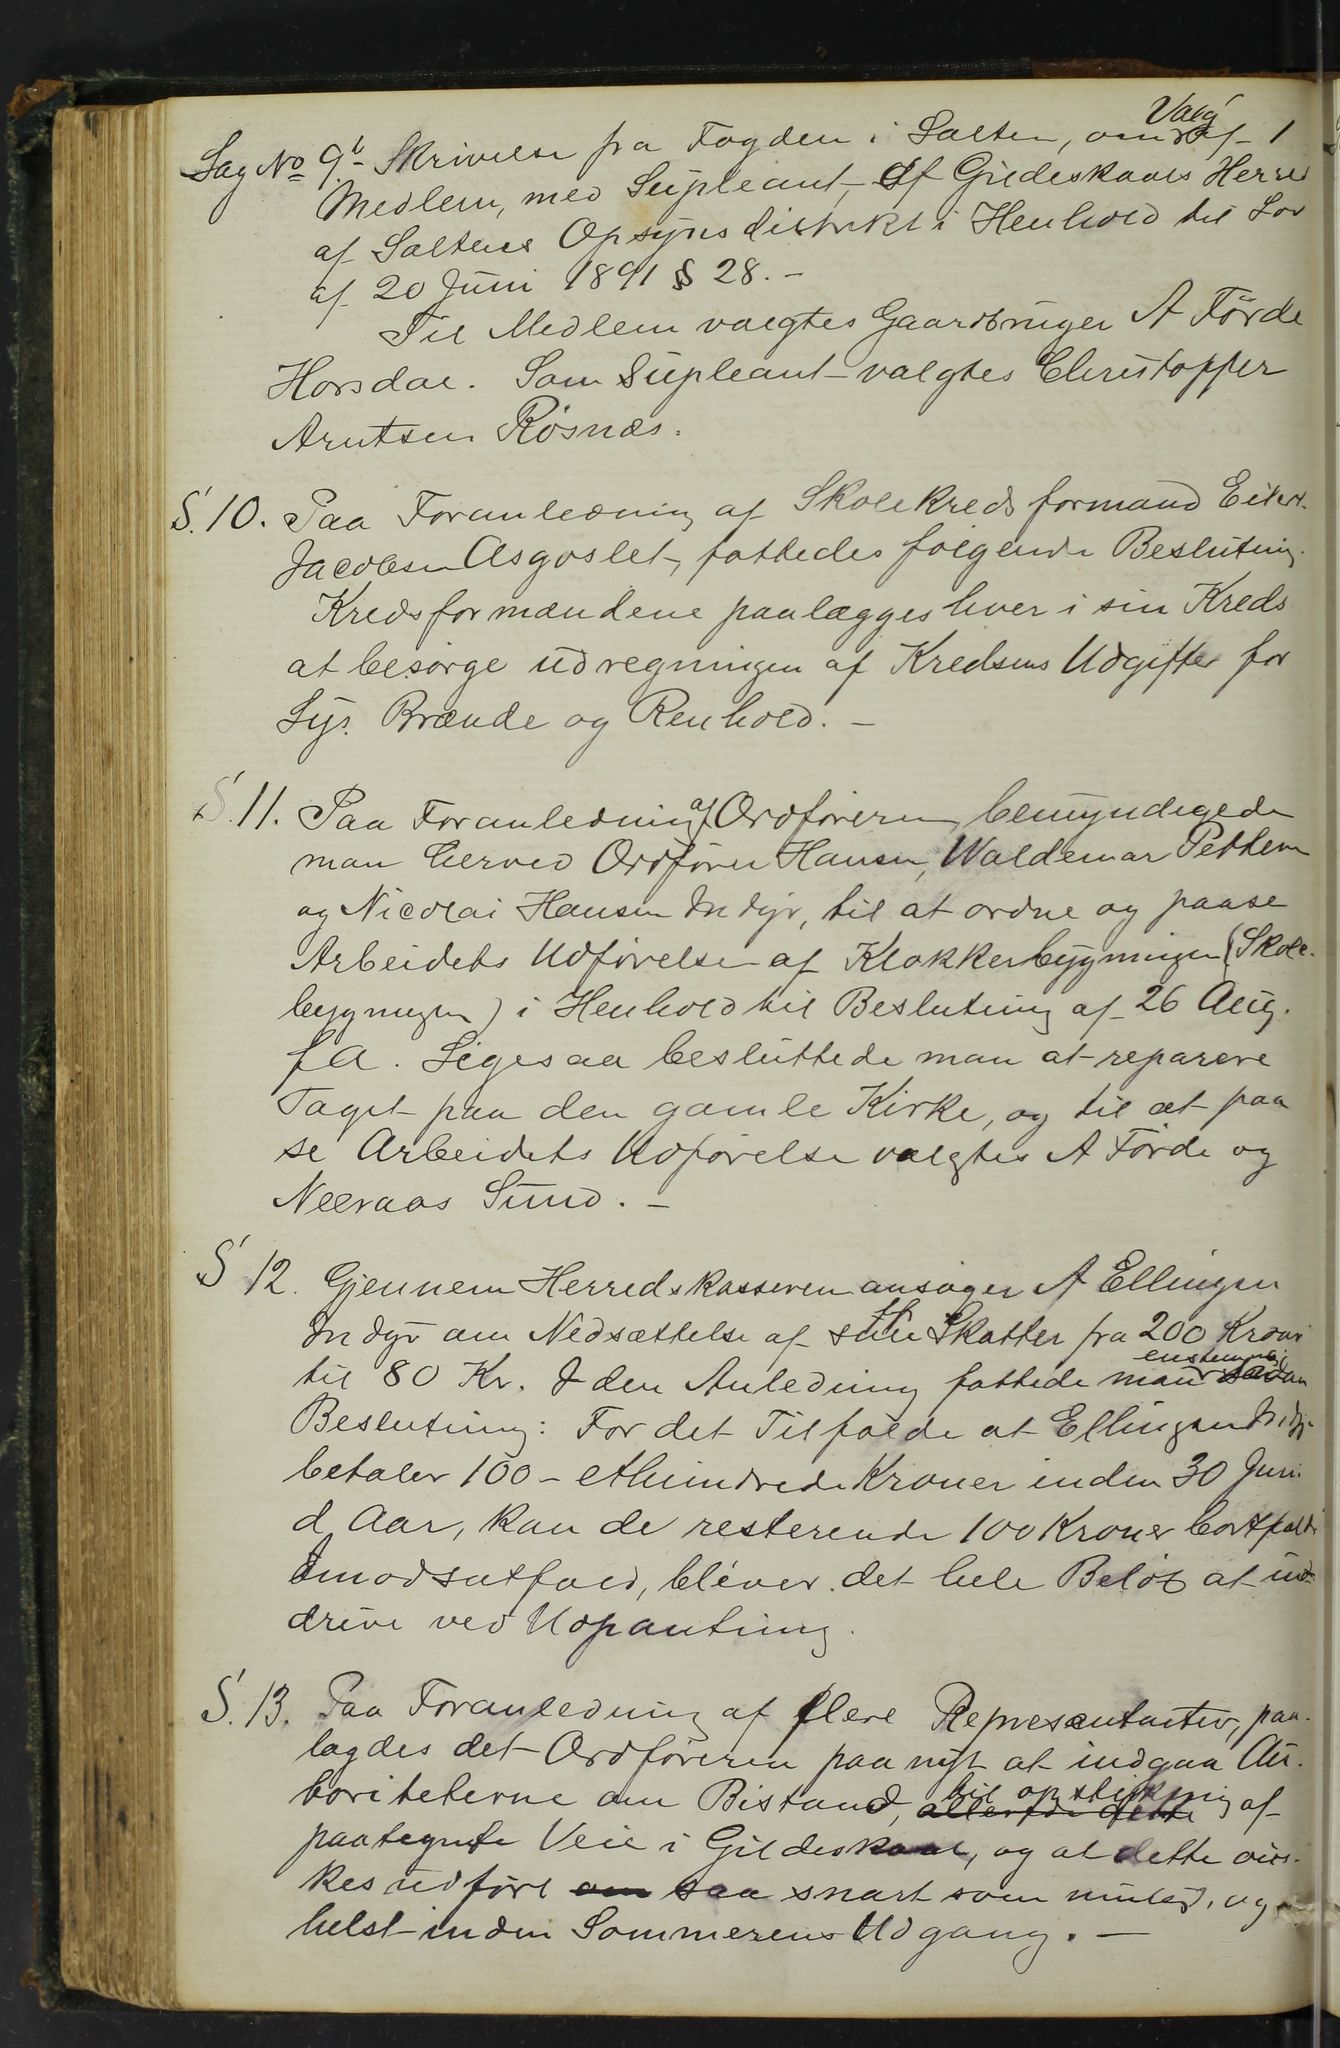 Sag No 9b- Skrivelse fra Fogden i Salten, om Valg af 1
Medlem, med Supleant, af Gildeskaals Herred
af Saltens Opsynsdistrikt i Henhold til Lov
af 20 Juni 1891 § 28. -
Til Medlem valgtes Gaardbruger A Förde
Horsdal. Som Supleant valgtes Christoffer
Arntsen Røsnæs.
S. 10. Paa Foranledning af Skolekredsformand Eilert
Jacobsen Asgoslet, fattedes følgende Beslutning.
Kredsformændene paalægges hver i sin Kreds
at besørge udregningen af Kredsens Udgifter for
Lys. Brænde og Renhold. -
S. 11. Paa Foranledning af Ordføreren bemyndigede
man herved Ordfører Hansen, Waldemar Pettern
og Nicolai Hansen Indyr, til at ordne og paase
Arbeidets Udførelse af Klokkerbygningen (Skole-
bygningen) i Henhold til Beslutning af 26 Aug.
f A. Ligesaa besluttede man at reparere
Taget paa den gamle Kirke, og til at paa
se Arbeidets Udførelse valgtes A Förde og
Neeraas Sund. -
S 12. Gjennem Herredskasseren ansøger A Ellingsen
Indyr om Nedsættelse af sin Skatter fra 200 Kroner
til 80 Kr. I den Anledning fattede man enstemmig saadan
Beslutning: For det Tilfælde at Ellingsen Indyr
betaler 100 - ethundrede Kroner inden 30 Juni
d Aar, kan de resterende 100 Kroner bortfalde
Imodsatfald, bliver det hele Beløb at ind-
drive ved Udpantning.
S. 13. Paa Foranledning af flere Repræsentanter, paa-
lagdes det Ordføreren paa nyt at indgaa Au-
toriteterne om Bistand, allerede dette til opstikning af
paategnte Veie i Gildeskaal, og at dette øns-
kes udført om saa snart som muligt, og
helst inden Sommerens Udgang. -